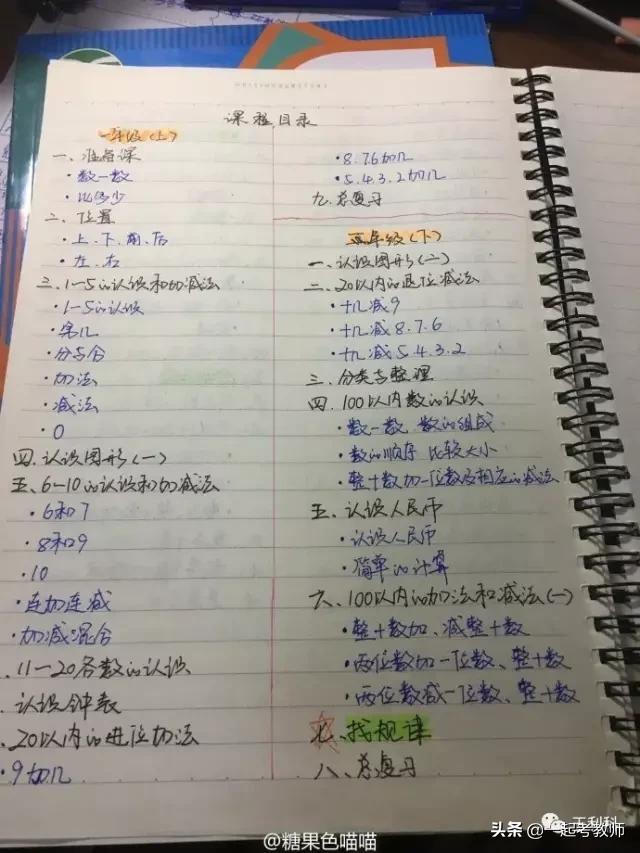 课程目录
一年级(上)
一、准备课
·数一数
·比多少
二、位置
·上、下、前、后
·左、右
三、1-5的认识和加减法
·1-5的认识
·第几
·分与合
·加法
·减法
·0
四、认识图形(一)
五、6-10的认识和加减法
·6和7
·8和9
·10
·连加连减
·加减混合
、11-20各数的认识
、认识钟表
、20以内的进位加法
·9加几
·8.7.6加几
·5.4.3.2加几
九、总复习
年级(下)
一、认识图形(二)
二、20以内的退位减法
·十几减9
·十几减8.7.6
·十几减5.4.3.2
三、分类与整理
四、100以内数的认识
·数一数、数的组成
·数的顺序 比较大小
·整十数加一位数及相应的减法
五、认识人民币
·认识人民币
·简单的计算
六、100以内的加法和减法(一)
·整十数加、减整十数
·两位数加一位数、整十数
·两位数减一位数、整十数
七、找规律
八、总复习
@糖果色喵喵
头条 @一起考教师